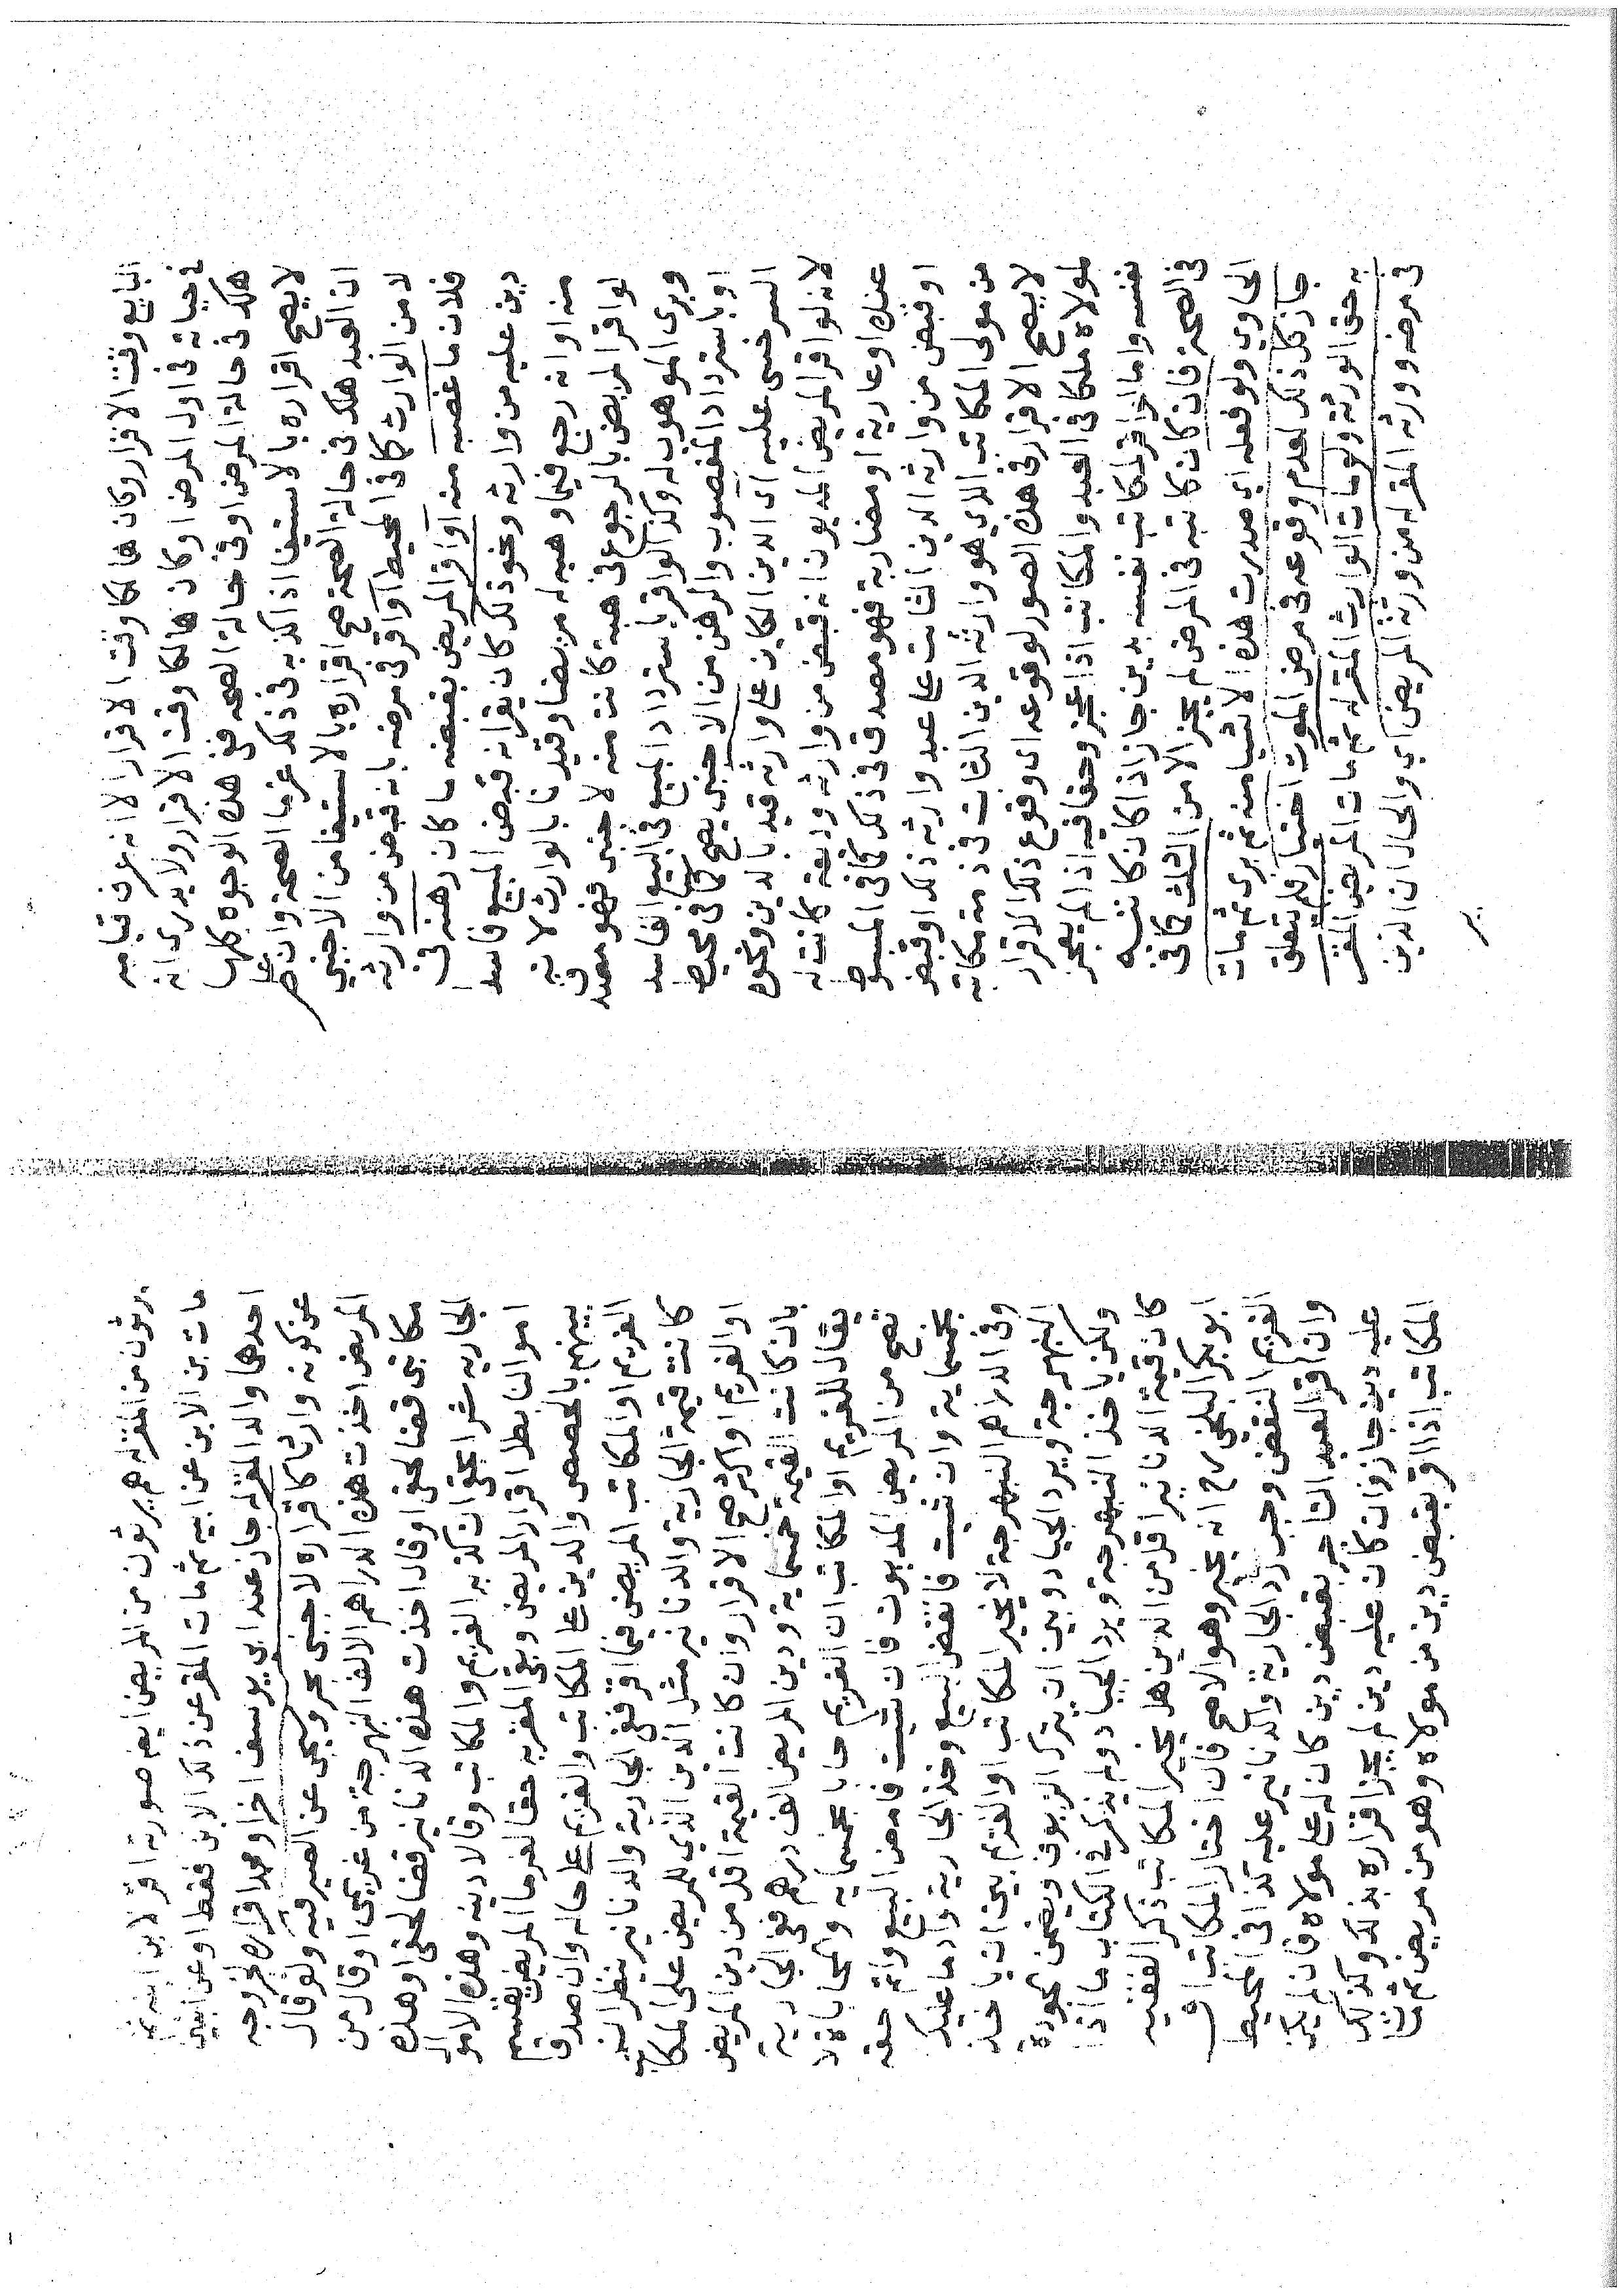 البايع وقت الاقرار وكان هالكا وقت الاقرار لانه عرف قيامه
في حياته في اول المرض او كان هالكا وقت الاقرار ولا يدرى انه
هلك في حالة المرض او في حالة الصحه ففي هذه الوجوه كلها
لا يصح اقراره بالاستيفا اذا كذبه في ذلك غرما الصحة وان علم
ان العبد هلك في حالة الصحة صح اقراره بالاستيفا من الاجنبي
لا من الوارث كما في المحيط او اقر في مرضه بانه قبض من وارثه
فلان ما غصبه منه او اقر المريض بقبضه ما كان رهنه في
دين عليه من وارثه ونحو ذلك كان يقر انه قبض المبيع فاسدا
منه او انه رجع فيما وهبه له مريضا وقيدنا بالوارث لانه
لو اقر المريض بالرجوع في هبة كانت منه لاجنبي فهو مصدق
وبرى الموهوب له وكذا لو اقر باسترداد المبيع في البيع الفاسد
او باسترداد المغصوب والرهن من الاجنبي يصح كما في محيط
السرخسي عليه اى الدين الكاين على وارثه قيد بالدين ونحوه
لانه لو اقر المريض المديون انه قبض من وارثه وديعة كانت له
عنده او عارية او مضاربة فهو مصدق في ذلك كما في المبسوط
او قبض من وارثه الدين الثابت على عبد وارثه ذلك او قبض
من مولى المكاتب الذي هو وارثه الدين الثابت في ذمة مكاتبه
لا يصح الاقرار في هذه الصور لوقوعه اى وقوع ذلك الاقرار
لمولاه ملكا في العبد والمكاتب اذا عجز وحقا فيه اذا لم يعجز
نفسه واما لو اقر لمكاتب نفسه بدين جاز اذا كان كاتبه
في الصحة فان كان كاتبه في المرض لم يجز الا من الثلث كما في
الحاوي ولو فعله اي صدرت هذه الاشيا منه ثم برى ثم مات
جاز كل ذلك لعدم وقوعه في مرض الموت اختيارا فلم تتعلق
به حق الورثة ولو مات الوارث المقر له ثم مات المريض المقر
في مرضه وورثه المقر له من ورثة المريض اي والحال ان الذين
ير
يرثون من المقر له هم يرثون من المريض ايضا صورته اقر لابن ابنه ثم
مات بن الابن عن ابيه ثم مات المقر عن ذلك الابن فقط او عن ابنين
احدهما والد المقر له جاز عند ابي يوسف اخرا ومحمد اقراره لخروجه
عن كونه وارثا كاقراره لاجنبي بحر ويجى عن الصيرفيه ولو قال
المريض اخذت هذه الدراهم الالف النبهرجة من غريمي او قال من
مكاتبي قضا لحقي او قال اخذت هذه الدنانير قضا لحقي او هذه
الجاريه شرا بحقي ان كذبه الغريم والمكاتب وقالا دينه وهذه الاموال
اموالنا بطل اقرار المريض وبقى المقر به حقا لغرما المريض يقسم
بينهم بالحصص والدين على المكاتب والغريم على حاله وان صدق
الغريم او المكاتب المريض فيما اقر ففي الجارية والدنانير ينظر ان
كانت قيمة الجارية والدنانير مثل الدين الذي للمريض على المكاتب
او الغريم او اكثر صح الاقرار وان كانت القيمة اقل من دين المريض
بان كانت القيمة خمسماية ودين المريض الف درهم ففي الجارية
يقال للغريم او المكاتب ان الغريم حابا بخمسمايه والمحاباة لا
تصح من المريض المديون فان شيت فامض البيع واتم حقه
بخمسماية وان شيت فانقض البيع وخذ الجارية واد ما عليك
وفي الدراهم النبهرجة لا يخير المكاتب او الغريم بين ان ياخذ
النبهرجة ويرد الجياد وبين ان يترك الزيوف ويضمن الجودة
ولكن ياخذ النبهرجة ويرد الجياد ولم يذكر في الكتاب ما اذا
كان قيمة الدنانير اقل من الدين هل يخير المكاتب ذكر الفقيه
ابو بكر البلخي رح انه يخير وهو الاصح فان اختار المكاتب او
الغريم النقض وجب رد الجارية والدنانير عليه كذا في المحيط
وان اقر العبد التاجر بقبض دين كان له على مولاه فان لم يكن
عليه دين جاز وان كان عليه دين لم يجز اقراره بذلك وكذلك
المكاتب اذا اقر بقبض دين من مولاه وهو من مريض ثم مات